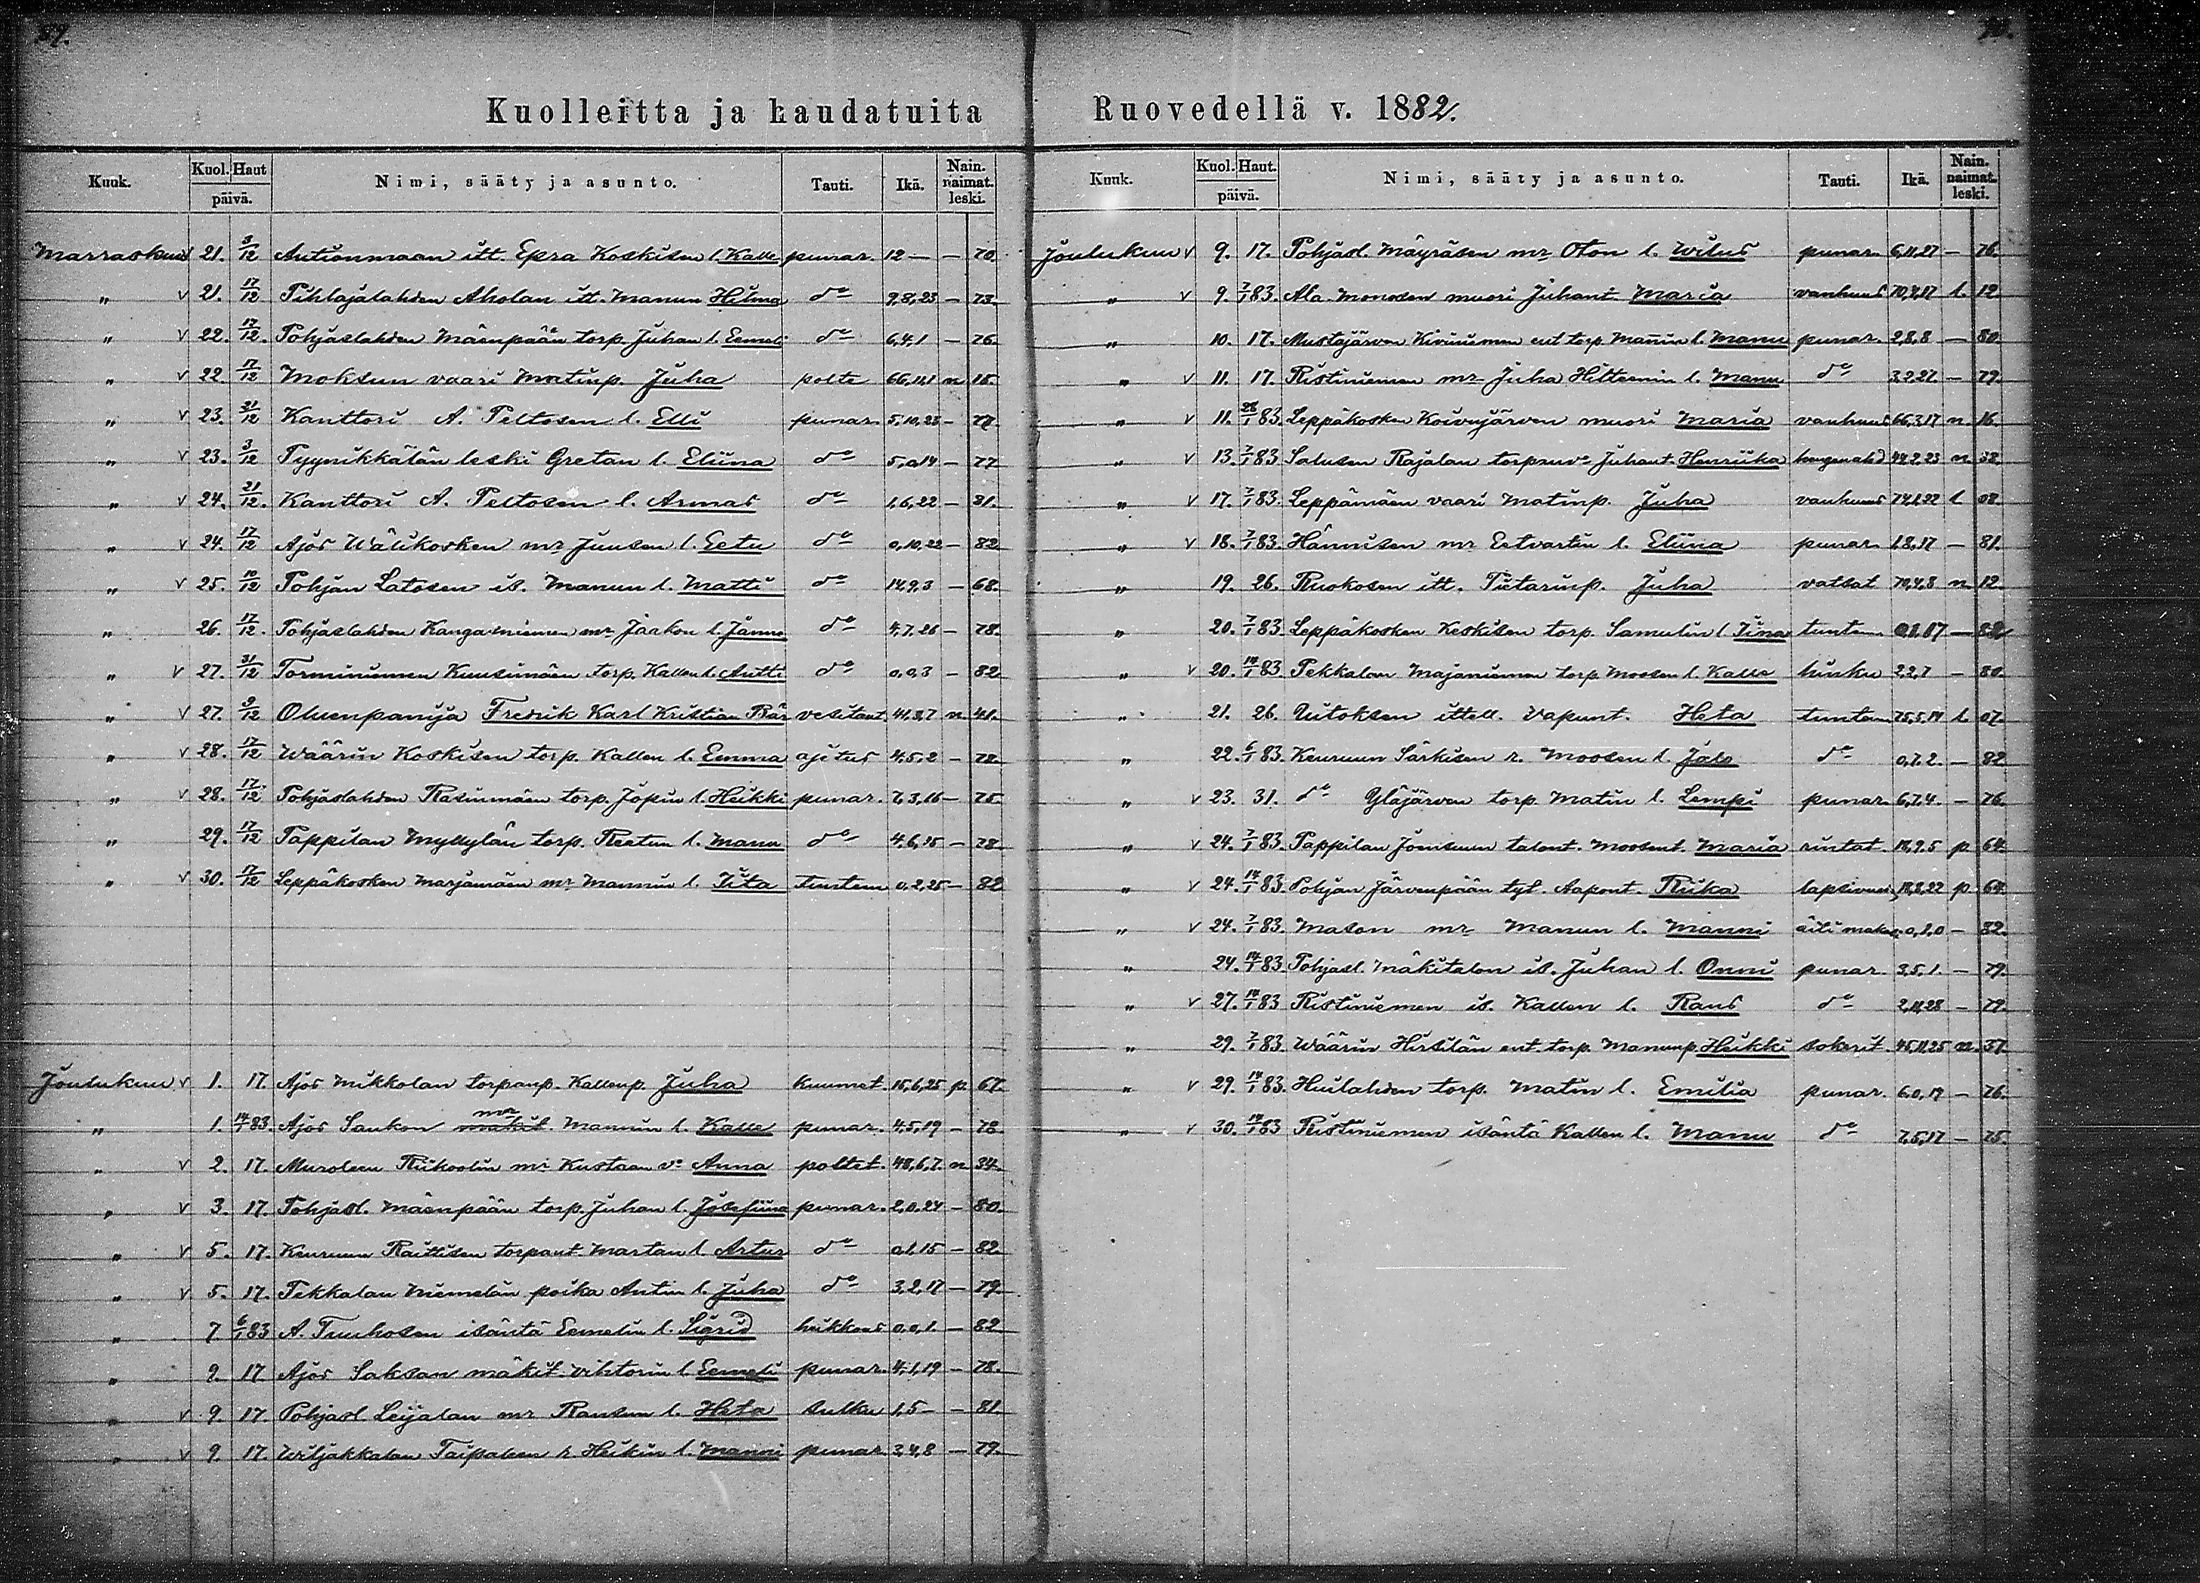 Kuolleitta ja haudatuita
Kuuk. Kuol. Haut päivä. Nimi, sääty ja asunto. Tauti. Ikä. Nain. naimat. leski.
Marraskuu 21. 3/12 Antionmaan itt. Epra Koskisen l. Kalle punar. 12 — — 70.
" v 21. 17/12 Pihlajalahden Aholan itt. Manun Hilma do 9,8,23 — 73.
" v 22. 17/12. Pohjaslahden Mäenpään torp. Juhan l. Eemeli do 6,4,1 — 76.
" v 22. 17/12 Moksun vaari Matinp. Juha polte n 15.
" v 23. 31/12 Kanttori A. Peltosen l. Elli punar. 5,10,23 — 77.
" v 23. 3/12 Tyynikkälän leski Gretan l. Eliina do 5,0,14 — 77
" v 24. 31/12. Kanttori A. Peltosen l. Armas do 1,6,22 — 81.
" v 24. 17/12 Ajos Wälikosken mr Juusen l. Eetu do 0,10,22 — 82
" v 25. 10/12 Pohjan Latosen is. Manun l. Matti do 14,9,3 — 68.
" 26. 17/12. Pohjaslahden Kangasniemen mr Jaakon l. Janne do 4,7,26 — 78.
" v 27. 31/12 Torminiemen Kuusimäen torp. Kallen l. Antti do 0,0,3 — 82.
" v 27. 9/12 Oluenpanija Fredrik Karl Kristian Bär vesitaut. n. 41.
" v 28. 17/12 Wäärin Koskisen torp. Kallen l. Emma ajetus 4,5,2 — 78.
" v 28. 17/12 Pohjaslahden Rasinmäen torp. Jopin l. Heikki punar. 7,3,16 — 75.
" 29. 17/12 Pappilan Myllylän torp. Reetun l. Manu do 4,6,15 — 78
" v 30. 17/12 Leppäkosken Marjamäen mr Mannin l. Iita tuntem 0,2,25 — 82
Joulukuu v 1. 17. Ajos Mikkolan torpanp. Kallenp. Juha kuumet. 15,6,25 p. 67.
" 1. 14/1 83. Ajos Saukon mr Mannin l. Kalle punar. 4,5,19 — 78.
" v 2. 17. Muroleen Riikoolin mr Kustaan vo Anna poltet. 48,6,7. n 34.
" v 3. 17. Pohjasl. Mäenpään torp. Juhan l. Josefiina punar. 2,0,24 — 80.
" v 5. 17. Keuruun Raittisen torpant. Martan l. Artur do 0,1,15 — 82.
" v 5. 17. Pekkalan Niemelän poika Antin l. Juha do 3,2,17 — 79.
" 7 6/1 83 A. Tuuhosen isäntä Eemelin l. Sigrid heikkous 0,0,1. — 82
" 9. 17 Ajos Saksan mäkit. Vihtorin l. Eemeli punar. 4,1,19 — 78.
" v 9. 17 Pohjasl. Leijalan mr Ransun l. Heta sulku 1,5 — — 81.
" v 9. 17. Wiljakkalan Taipaleen r. Heikin l. Manni punar. 3,4,8 — 79.
Ruovedellä v. 1882.
Kuuk. Kuol. Haut. päivä. Nimi, sääty ja asunto. Tauti. Ikä. Nain. naimat. leski.
Joulukuu v 9. 17. Pohjasl. Mäyräsen mr Oton l. Wilus punar. 6,11,27 — 76.
" v 9. 7/1 83. Ala-Monosen muori Juhant. Maria vanhuus 70,4,17 l. 12
" 10. 17. Mustajärven Kiviniemen ent torp. Mannin l. Manu punar. 2,8,8 — 80.
" v 11. 17. Ristiniemen mr Juha Hitteenin l. Manu do 3,2,27. — 79.
" v 11. 28/1 83. Leppäkosken Koivujärven muori Maria vanhuus 66,3,17 n. 16.
" v 13. 7/1 83. Salusen Rajalan torp. Juhant. Henriika n. 38
" v 17. 7/1 83. Leppämäen vaari Matinp. Juha vanhuus l 08.
" v 18. 7/1 83. Hännisen mr Eetvartin l. Eliina punar. 1,8,17 — 81.
" 19. 26. Ruokosen itt. Pietarinp. Juha vatsat. 70,4,8 n. 12.
" 20. 7/1 83. Leppäkosken Keskisen torp. Samulin l. Iina tuntem — 82
" v 20. 14/1 83 Pekkalan Majaniemen torp. Moosen l. Kalle hinku 2,2,7 — 80.
" 21. 26. Uitoksen ittell. Vapunt. Heta tuntem 75,5,14 l. 07.
" 22. 6/1 83. Keuruun Särkisen r. Moosen l. Jale do 0,7,2. — 82
" v 23. 31. do Yläjärven torp. Matin l. Lempi punar. 6,7,4. — 76.
" v 24. 7/1 83. Pappilan Jönisuun talont. Moosent. Maria rintat. 18,9,5 p 64.
" v 24. 14/1 83. Pohjan Järvenpään tyt. Aapont. Riika 18,8,22 p 64.
" v 24. 7/1 83. Mason mr Manun l. Manni 0,2,0 — 82.
" 24. 14/1 83 Pohjasl. Mäkitalon is. Juhan l. Onni punar. 3,5,1. — 79.
" v 27. 14/1 83 Ristiniemen is. Kallen l. Rans do 2,11,28 — 79.
" 29. 7/1 83. Wäärin Hirsilän ent. torp. Manunp. Heikki sokerit. 45,11,25 n. 37.
" v 29. 14/1 83. Huilahden torp. Matin l. Emilia punar. 6,0,17 — 76.
" v 30. 14/1 83 Ristiniemen isäntä Kallen l. Manu do 7,5,17 — 75.